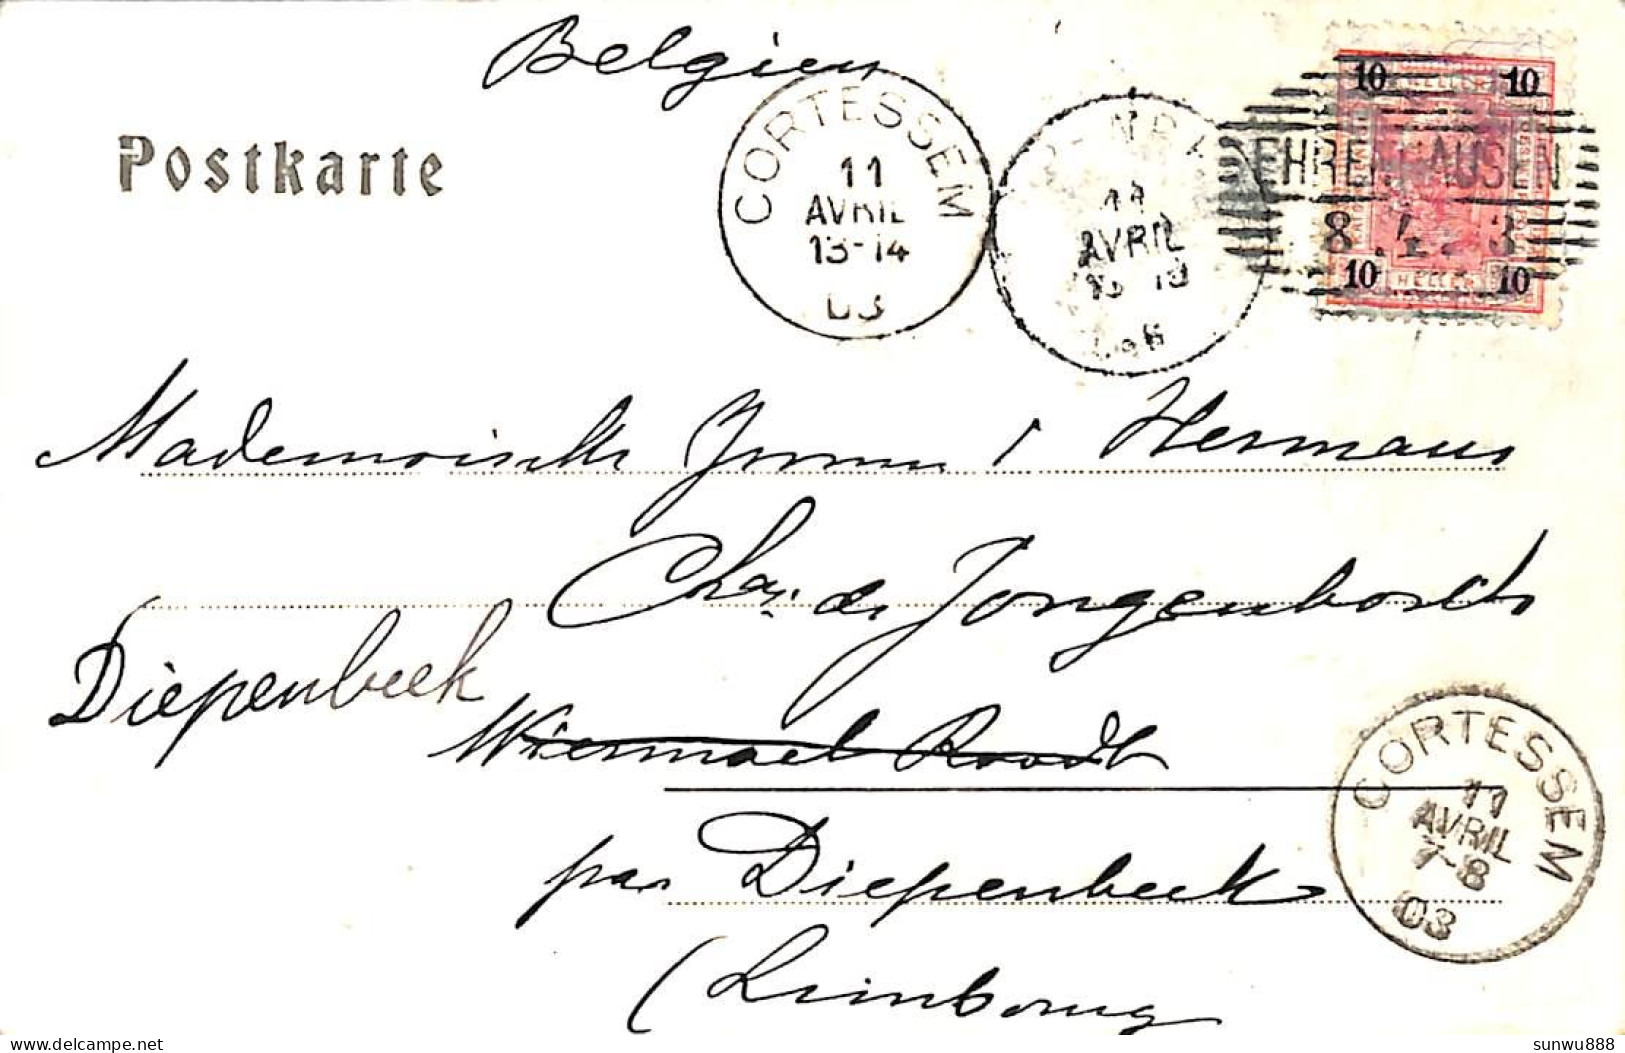 Belgien
Postkarte
CORTESSEM
11
AVRIL
13-14
03
11
AVRIL
10 10
HELLER
EHRENHAUSEN
8. 4. 3
10 HELLER 10
Mademoiselle Hermans
Chau de Jongenbosch
Diepenbeek
Wiermael Roodt
par Diepenbeek
(Limbourg
CORTESSEM
11
AVRIL
7-8
03
sunwu888